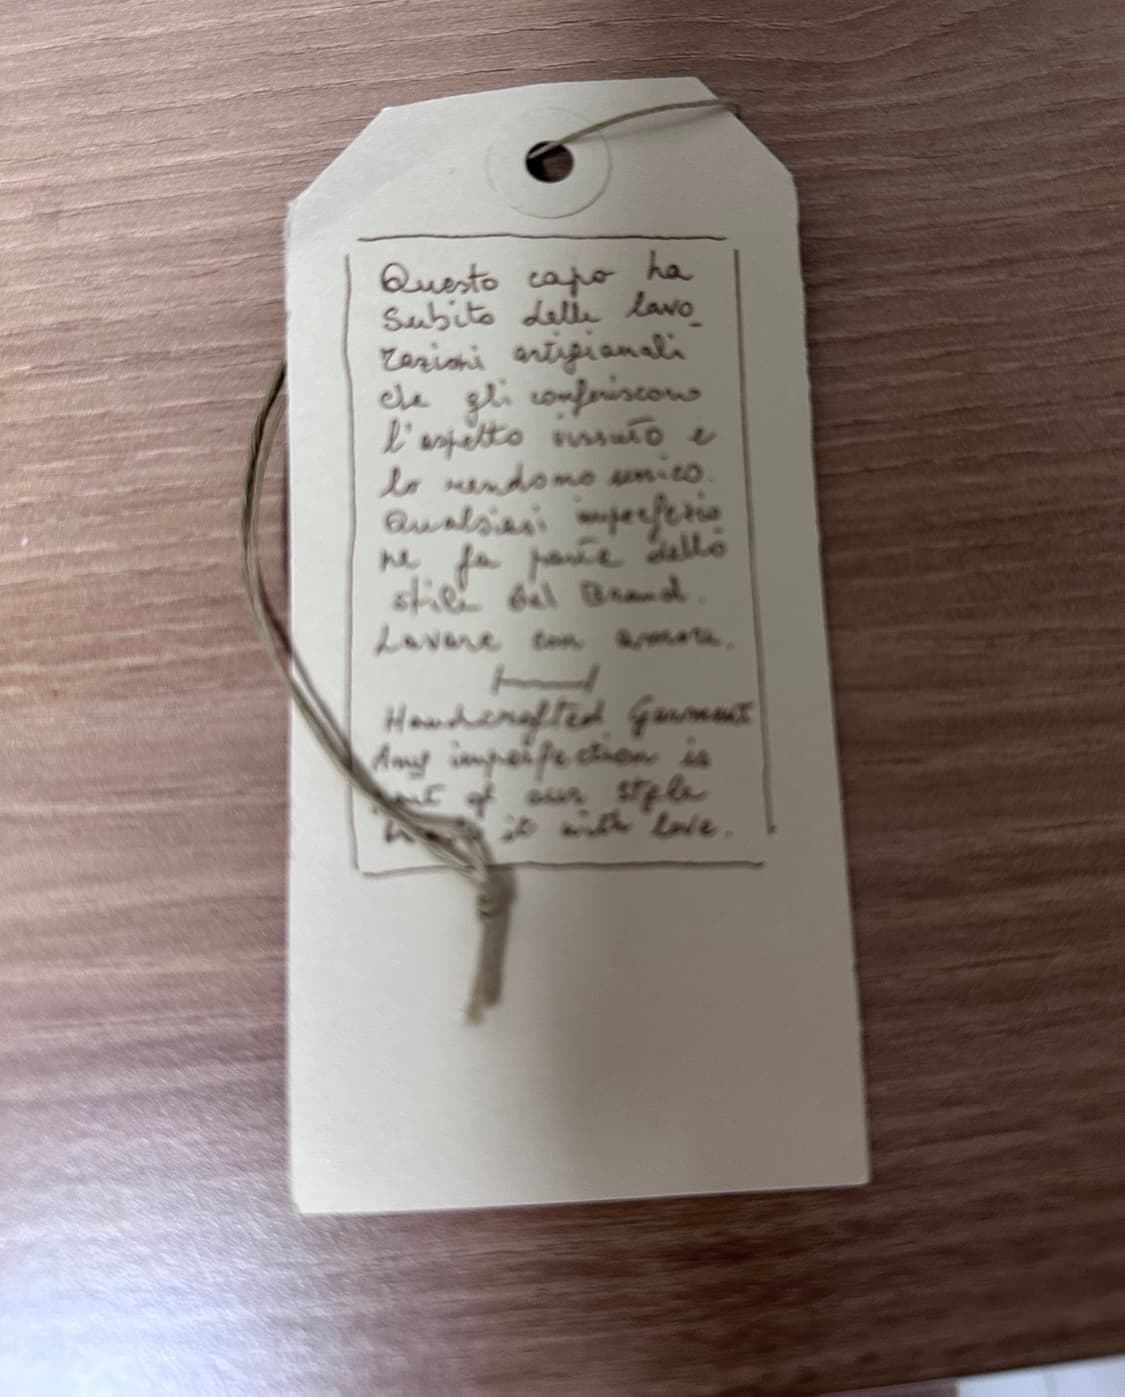 Questo capo ha
Subito delle lavo_
razioni artigianali
che gli conferiscono
l'aspetto vissuto e
lo rendono unico.
Qualsiasi imperfezio
ne fa parte dello
stile del Brand.
Lavare con amore.
Handcrafted Garment
Any imperfection is
part of our style
it with love.